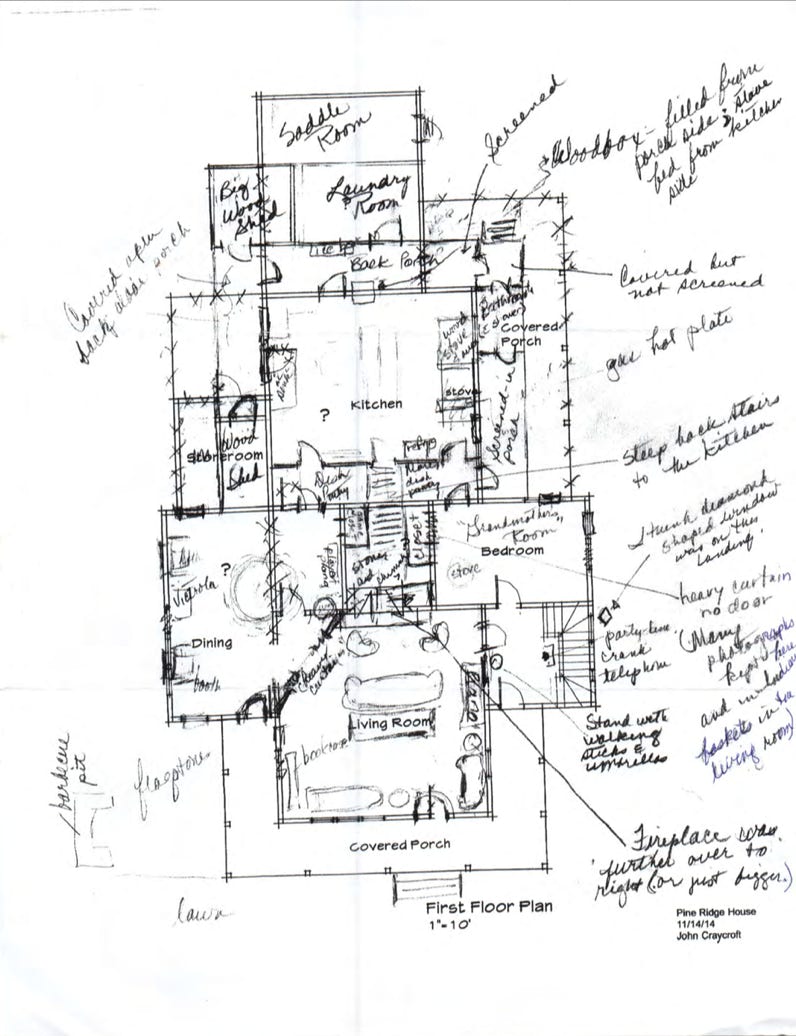 Saddle
Room
Screened
Woodbox - filled from
porch side & stove
fed from kitchen
side
Big
Wood
Shed
Laundry
Room
?
Back Porch
Covered open
back door porch
Covered but
not screened
Covered
Porch
Screened-in
porch
gas hot plate
wood
stove
stove
Kitchen
?
Steep back stairs
to the kitchen
Storeroom
Wood
Shed
Dish
Pantry
refrig
More
dish
closet
"Grandmother's
Room"
Bedroom
stove
I think diamond
shaped window
was on this
landing.
heavy curtain
no door
?
Victrola
player
piano
stones
and
chimney
Dining
booth
party-line
crank
telephone
(Many
photographs
kept here
and in Indian
baskets in the
living room)
Living Room
Piano
bookcase
Stand with
walking
sticks &
umbrellas
barbecue
pit
flagstones
Covered Porch
Fireplace was
further over to
right (or just bigger.)
lawn
First Floor Plan
1"-10'
Pine Ridge House
11/14/14
John Craycroft